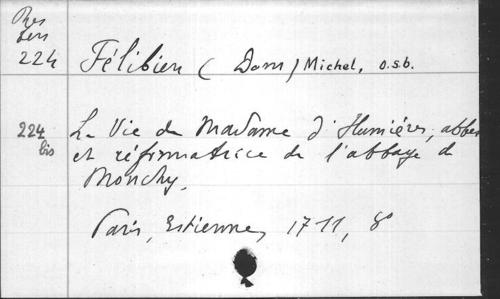 Res
224
Félibien (Dom) Michel, o.s.b.
224 bis
La Vie de Madame d'Humières, abbes
et réformatrice de l'abbaye de
Monchy.
Paris, Estienne, 1711, 8°